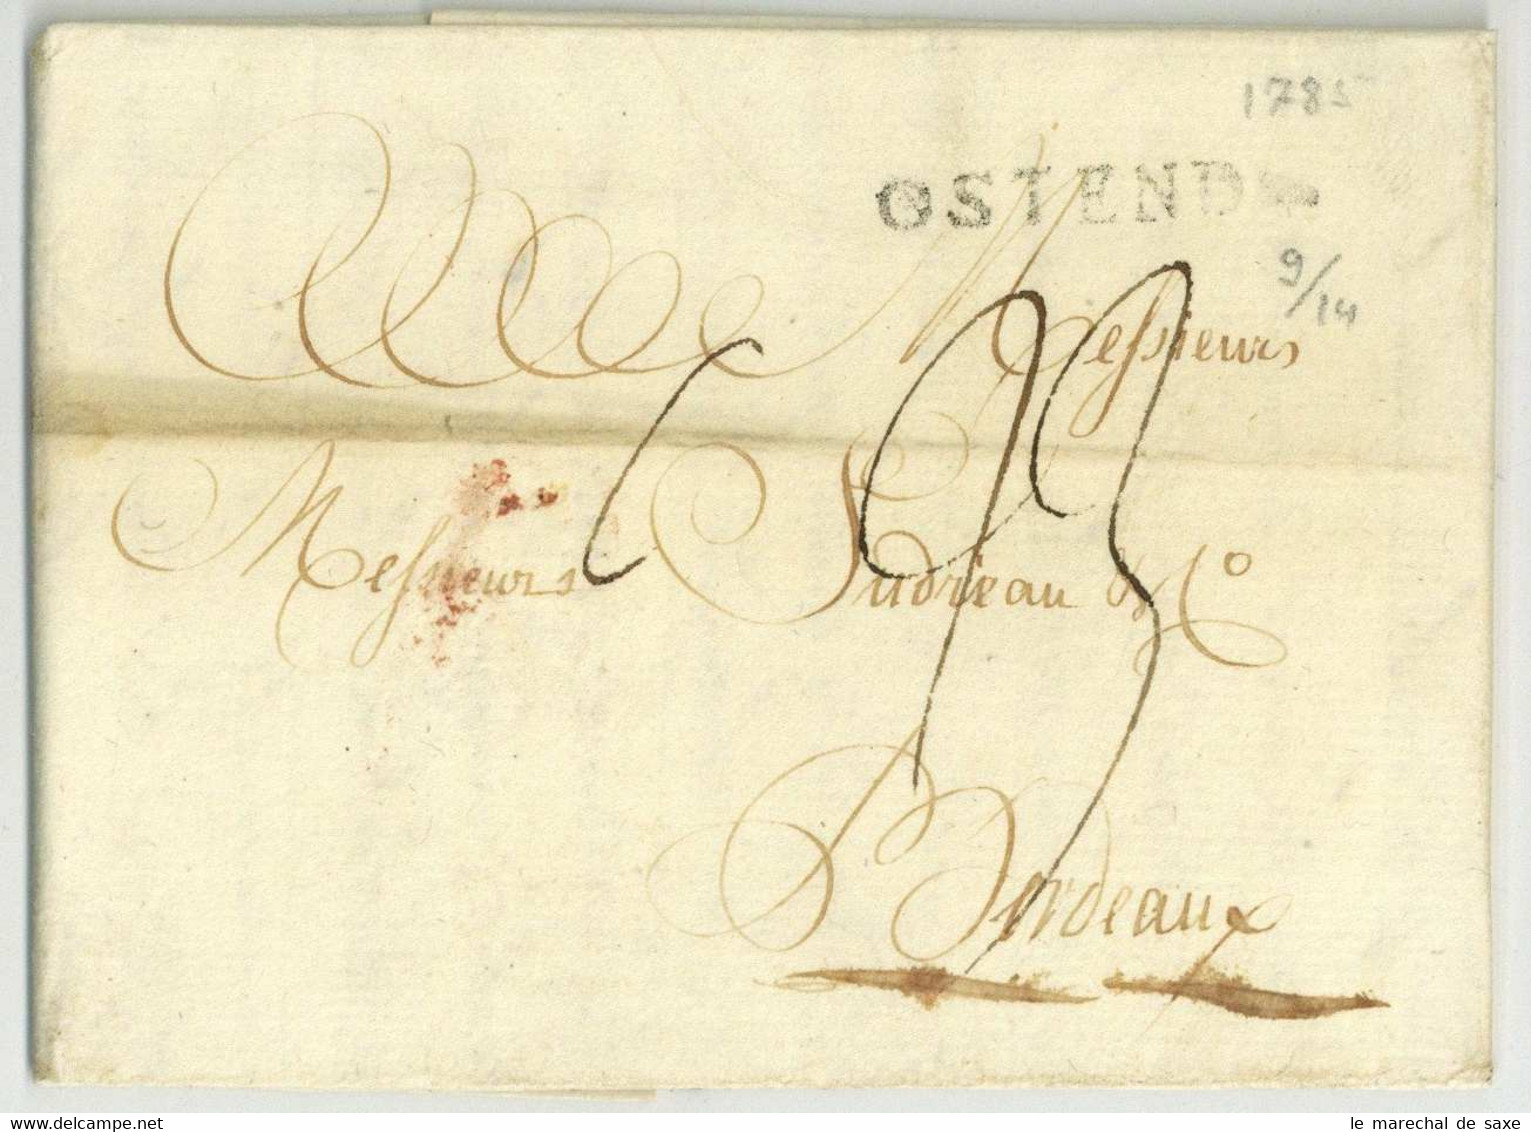 1785
OSTENDE
9/14
Messieurs
Messieurs Sudreau & Co
Bordeaux
delcampe.net
le marechal de saxe